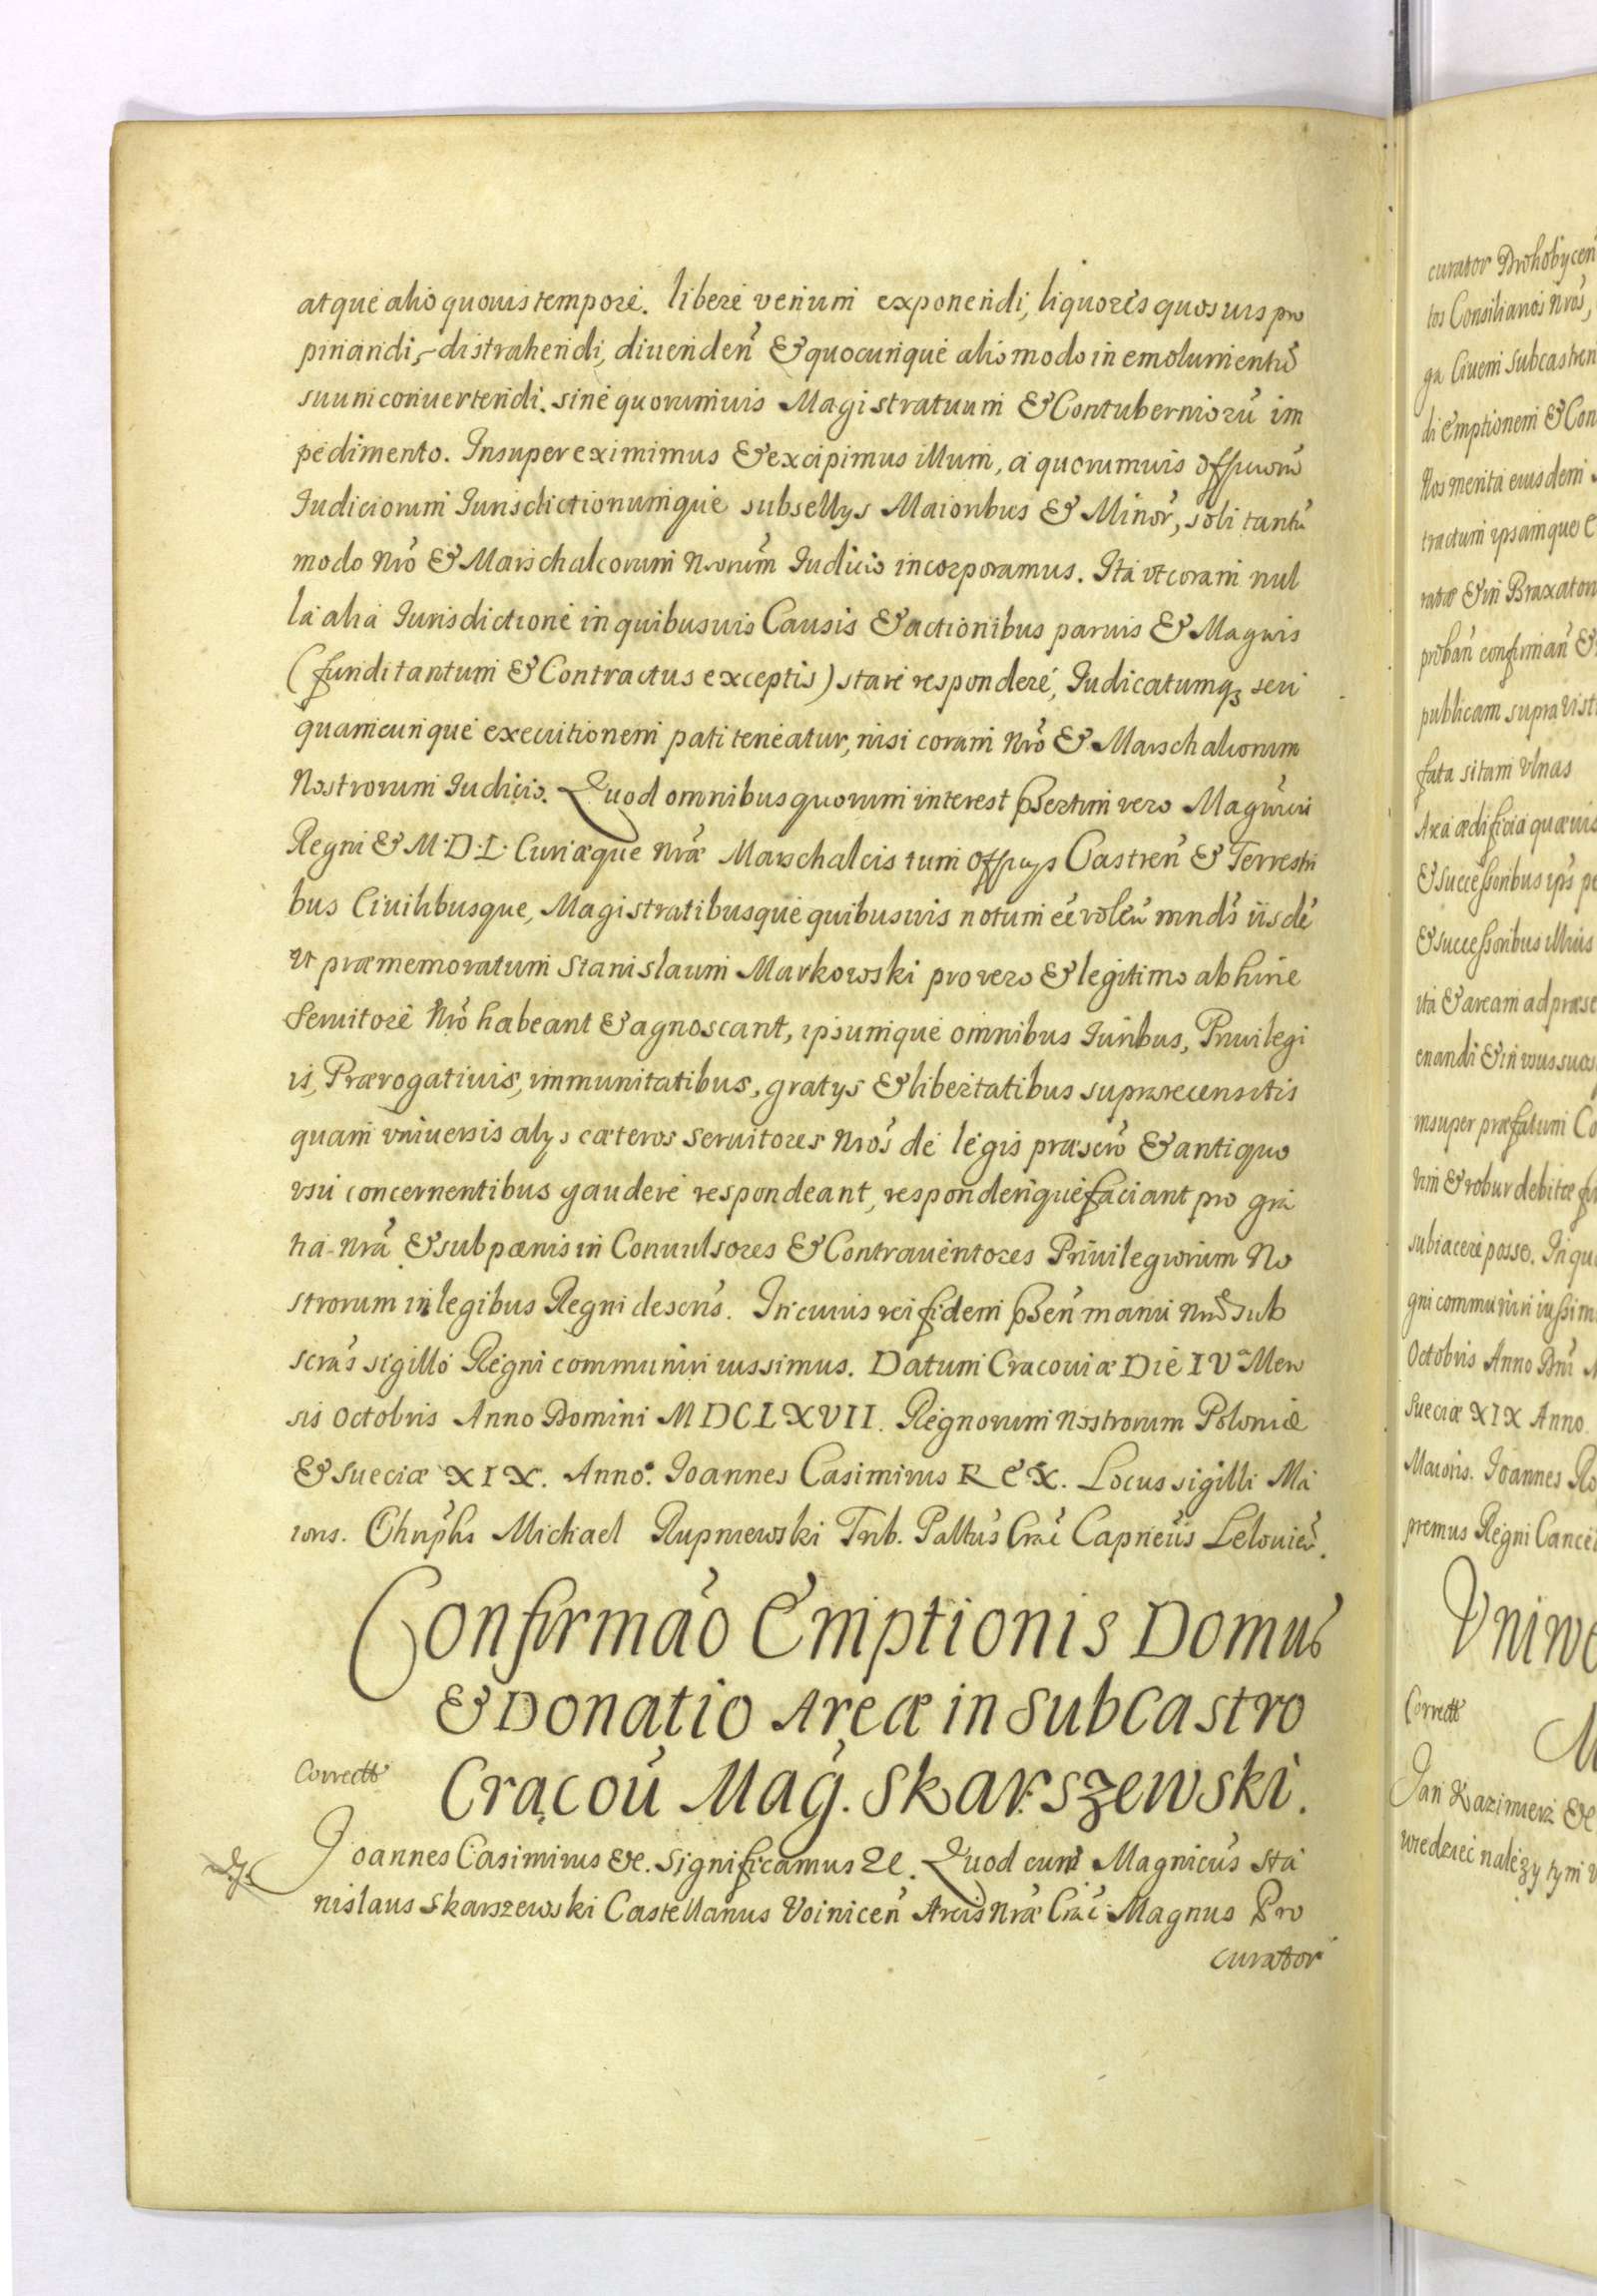 atque alio quovis tempore. libere venum exponendi, liquores quosvis pro
pinandi, distrahendi, divenden̄ & quocunque alio modo in emolumentū
suum convertendi. sine quorumvis Magistratuum & Contuberniorū im
pedimento. Insuper eximimus & excipimus illum, a quorumvis Officiorū
Iudiciorum Iurisdictionumque subsellijs Maioribus & Minor̄, soli tantū
modo Nr̄o & Marschalcorum Nrorum̄ Iudicio incorporamus. Ita vt coram nul
la alia Iurisdictione in quibusuis Causis & actionibus paruis & Magnis
(fundi tantum & Contractus exceptis) stare respondere, Iudicatumqʒ seu
quamcunque executionem pati teneatur, nisi coram Nr̄o & Marschalcorum
Nostrorum Iudicio. Quod omnibus quorum interest p̄sertim vero Magn̄cis
Regni & M. D. L. Curiæque Nrǣ Marschalcis tum Officijs Castren̄ & Terrestri
bus Civilibusque, Magistratibusque quibusuis notum eē volen̄ mnd̄s iisdē
vt præmemoratum Stanislaum Markowski pro vero & legitimo abhinc
Servitore Nr̄o habeant & agnoscant, ipsumque omnibus Iuribus, Privilegi
is, Prærogativis, immunitatibus, gratijs & libertatibus suprarecensitis
quam vniuersis alijs cæteros Servitores Nr̄os de legis præscr̄o & antiquo
vsu concernentibus gaudere respondeant, responderique faciant pro gra
tia Nrā & sub pænis in Convulsores & Contraventores Privilegiorum No
strorum in legibus Regni descr̄is. In cuius rei fidem p̄sen̄ manu Nrā sub
scrās sigillo Regni communiri iussimus. Datum Cracoviæ Die IVa Men
sis Octobris Anno Domini MDCLXVII. Regnorum Nostrorum Poloniæ
& Sueciæ XIX. Anno. Ioannes Casimirus REX. Locus sigilli Ma
ioris. Chrūphs Michael Rupniewski Trib. Paltūs Crac̄ Capneūs Lelovien̄.
Confirmāo Emptionis Domus
& Donatio Areæ in SubCastro
Correctt
Cracov̄ Mag. Skarszewski.
Ioannes Casimirus &c. Significamus &c. Quod cum Magnicūs Sta
nislaus Skarszewski Castellanus Voinicen̄ Arcis Nrǣ Crac̄ Magnus Pro
curator
curator Drohobycen̄
tos Consiliarios Nros,
ga Ciuem Subcastren
di Emptionem & Con
Nos merita eiusdem
tractum ipsamque
ratæ & in Braxator
proban̄ confirman̄ &
publicam supra vist
fata sitam Vlnas
Area ædificia quæuis
& successoribus ips pe
& successoribus illius
ita & aream ad præse
enandi & in vsus suos
insuper præfatum Co
vim & robur debitæ fi
subiacere posse. In qu
gni communiri iussim
Octobris Anno Dn̄i
Sueciæ XIX Anno.
Maioris. Ioannes
premus Regni Cance
Vniwe
Correctt
Jan Kazimierz &c
wiedziec nalezy tym